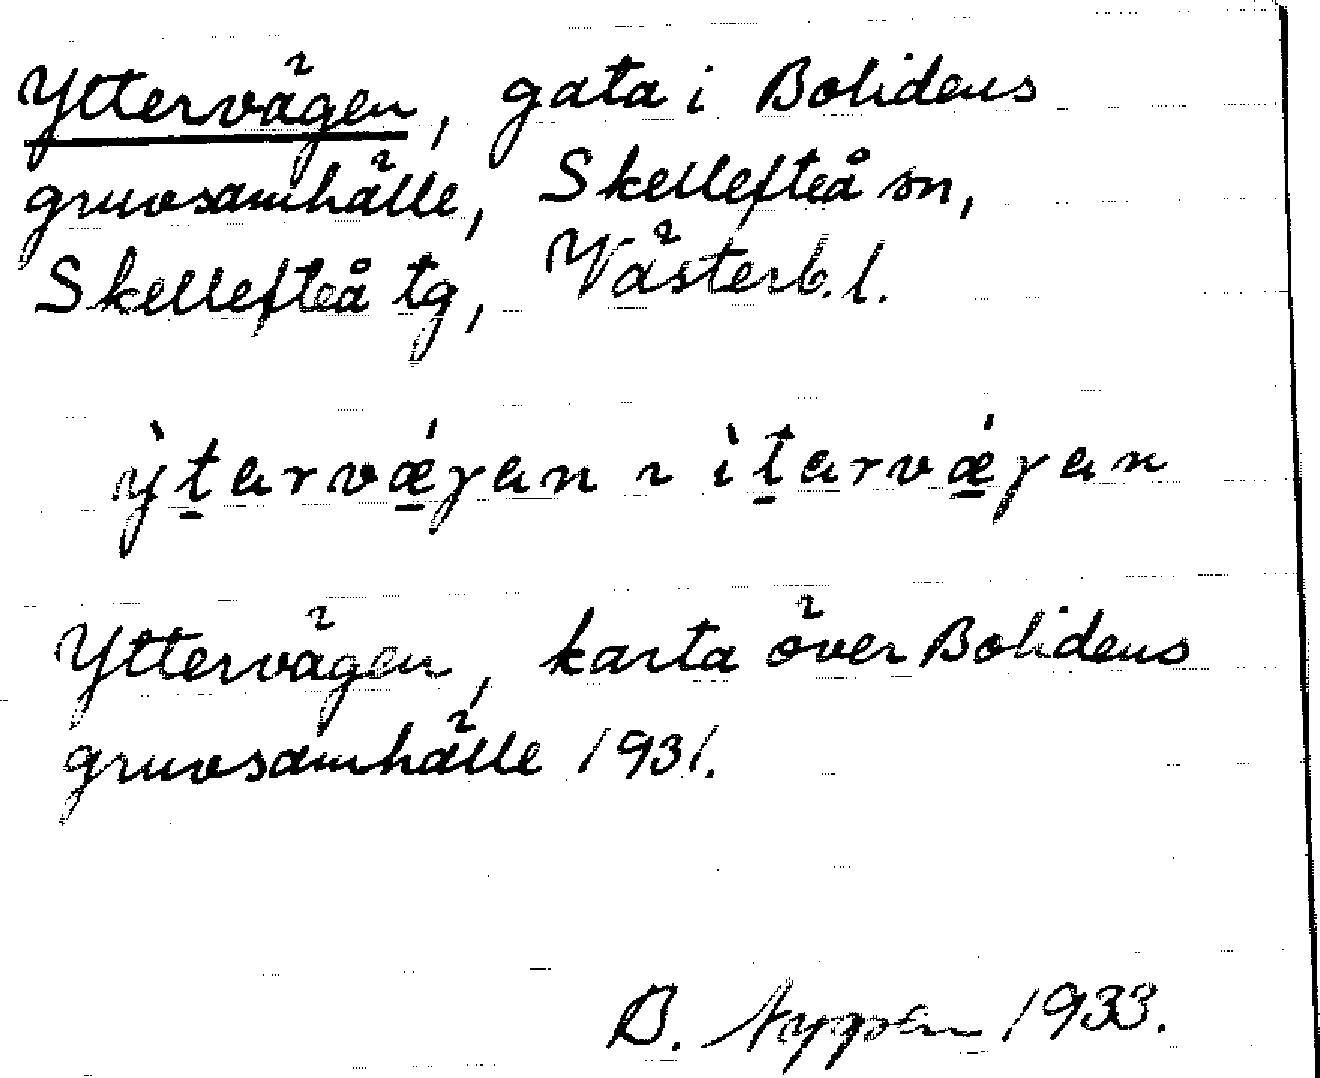 Yttervägen, gata i Bolidens
gruvsamhälle, Skellefteå sn,
Skellefteå tg, Västerb. l.
ỳt̲ərvǽ̲γən ~ ìt̲ərvǽ̲γən
Yttervägen, karta över Bolidens
gruvsamhälle 1931.
B. 1933.